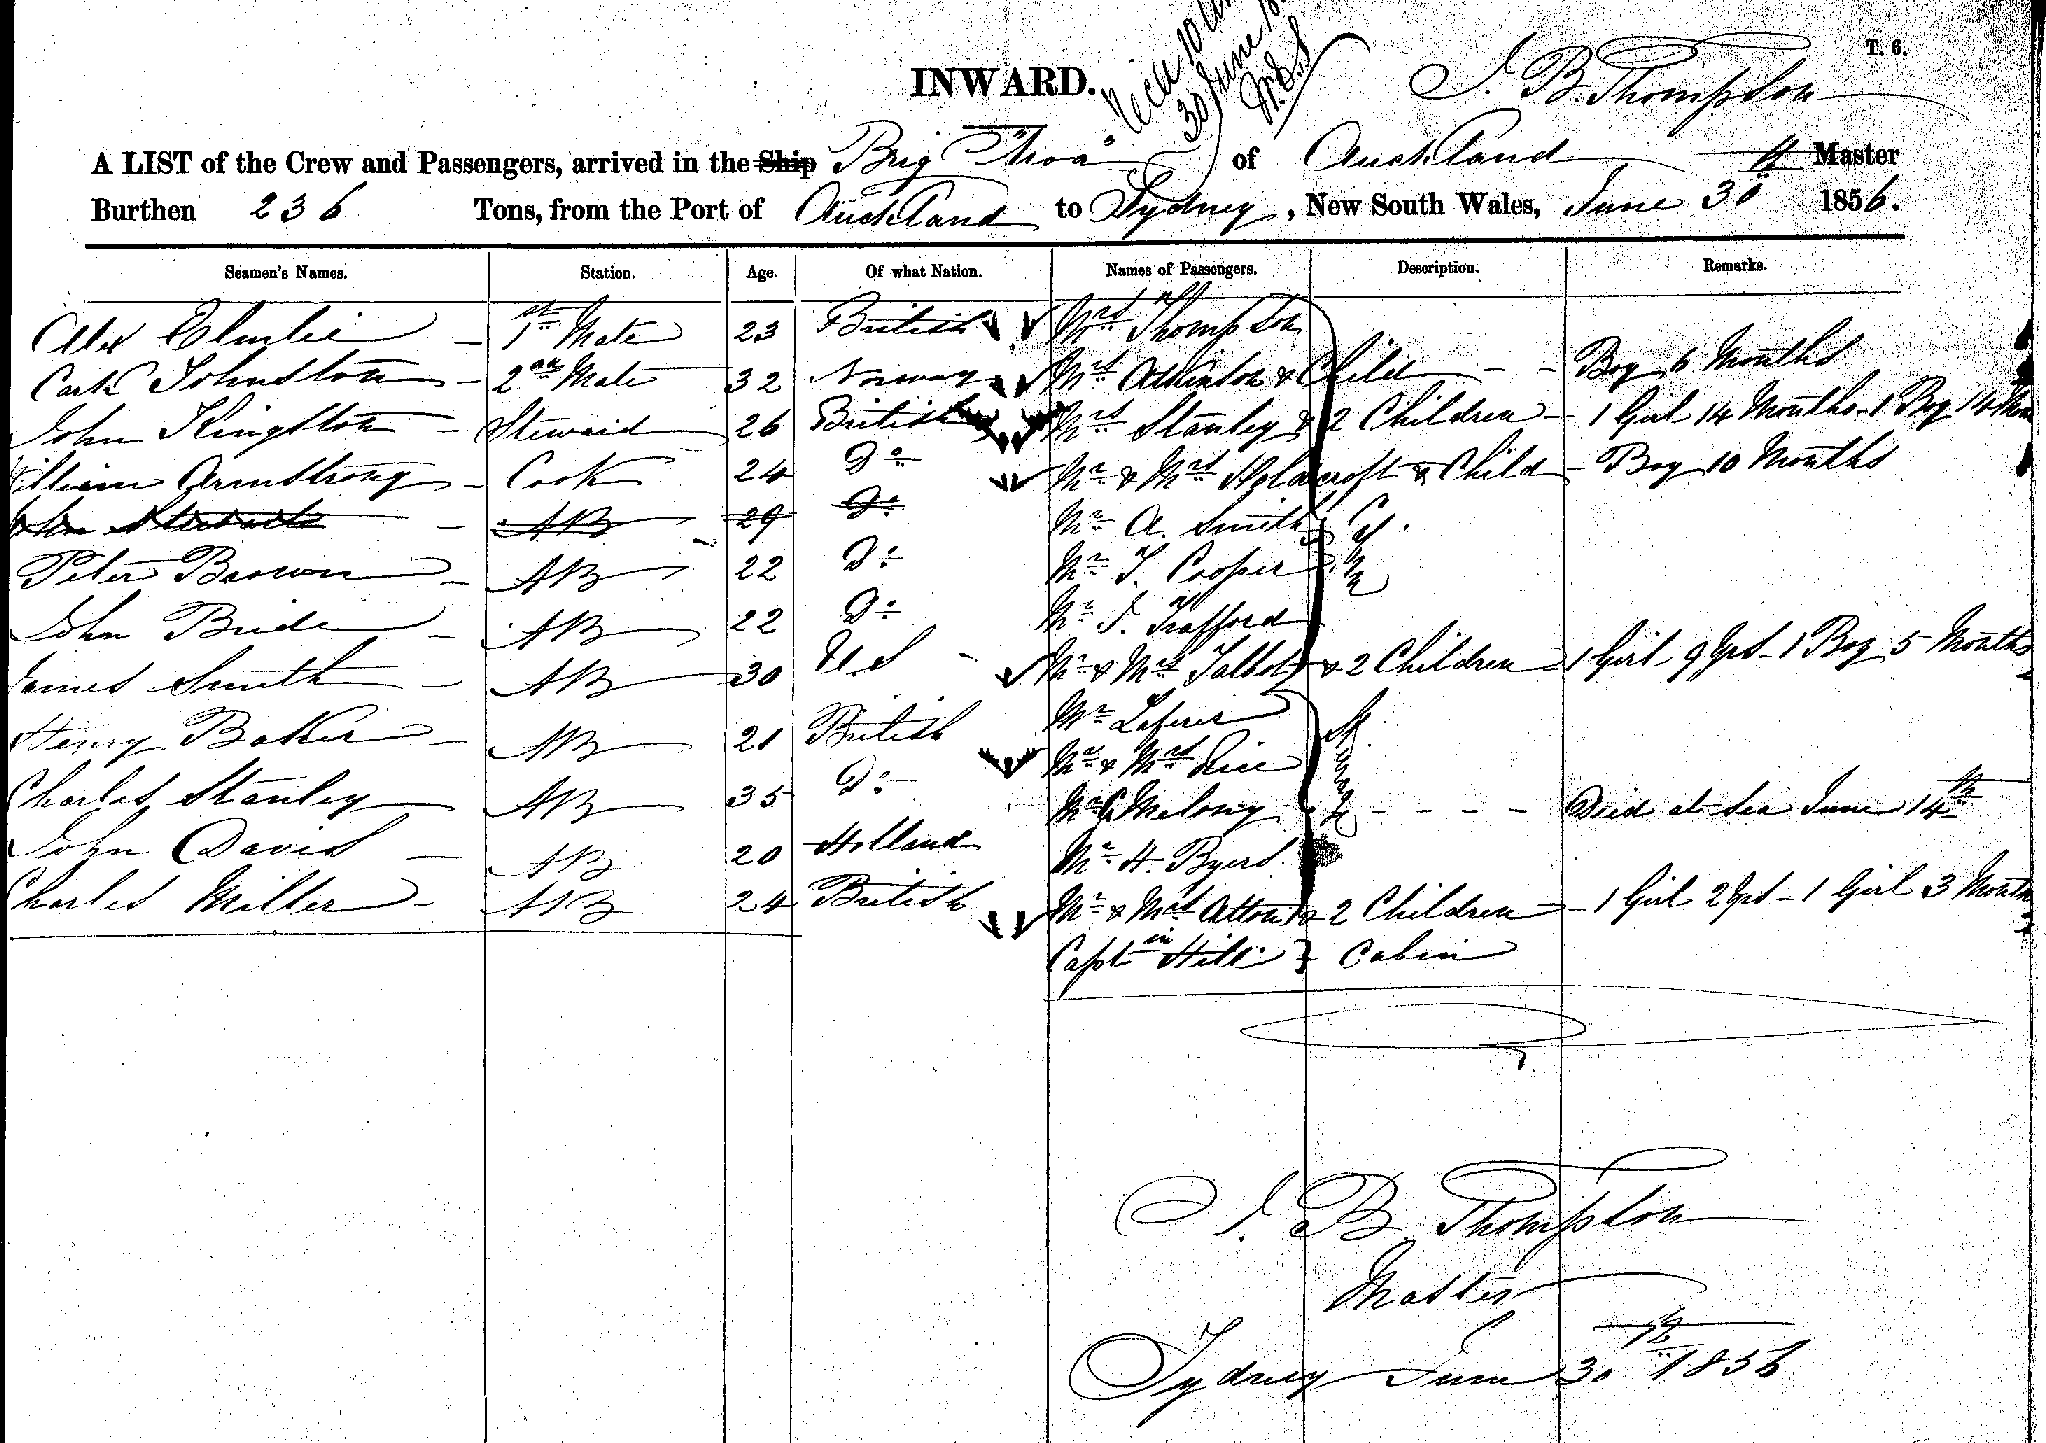 T. 6.
INWARD.
30 June
J. B. Thompson
A LIST of the Crew and Passengers, arrived in the Ship Brig "Moa" of Auckland Master
Burthen 236 Tons, from the Port of Auckland to Sydney, New South Wales, June 30th 1856.
Seamen's Names. Station. Age. Of what Nation. Names of Passengers. Description. Remarks.
Alex Elmslie 1st Mate 23 British Mrs Thompson
Johnston 2nd Mate 32 Norway Mrs & Child Boy 6 Months
John Kingston Steward 26 British Mrs Stanley & 2 Children 1 Girl 14 Months 1 Boy 14
William Armstrong Cook 24 Do Mr & Mrs Holdcroft & Child Boy 10 Months
AB 29 Do Mr A. Smith
Peter Brown AB 22 Do Mr T. Cooper
John Bride AB 22 Do Mr J. Trafford
James Smith AB 30 U S Mr & Mrs Talbot & 2 Children 1 Girl 9 Yrs 1 Boy 5 Months
Henry Baker AB 21 British Mr
Charles Stanley AB 35 Do Mr & Mrs
Mr Malony Died at Sea June 14th
John Davis AB 20 Holland Mr H. Byers
Charles Miller AB 24 British Mr & Mrs Atton & 2 Children 1 Girl 2 Yrs 1 Girl 3 Months
Captin Hill } Cabin
J. B. Thompson
Master
Sydney June 30th 1856